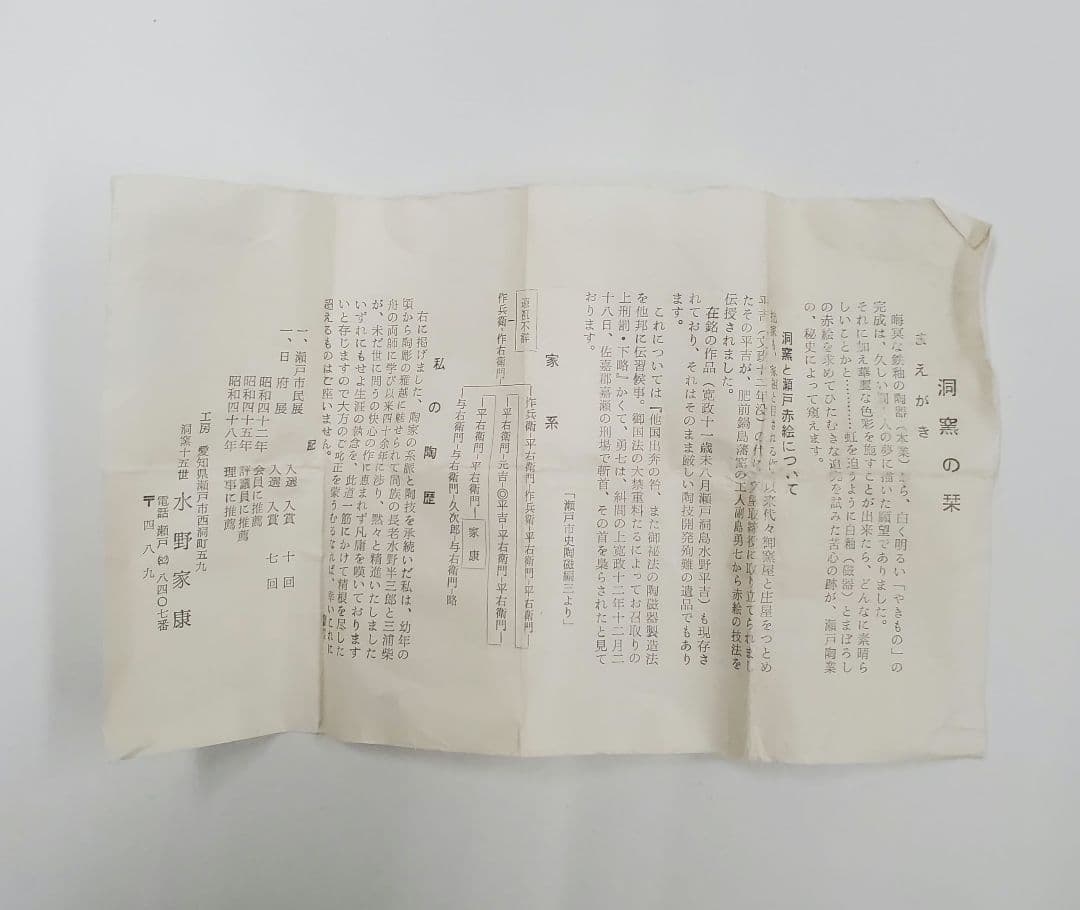 洞窯の栞
まえがき
晦冥な鉄釉の陶器(本業)から、白く明るい「やきもの」の
完成は、久しい間、人の夢に描いた願望でありました。
それに加え華麗な色彩を施すことが出来たら、どんなに素晴ら
しいことかと…………虹を追うように白釉(磁器)とまぼろし
の赤絵を求めてひたむきな追究を試みた苦心の跡が、瀬戸陶業
の、秘史によって窺えます。
洞窯と瀬戸赤絵について
以来代々御窯屋と庄屋をつとめ
平吉(文政十二年没)の代に 取締役に取り立てられまし
たその平吉が、肥前鍋島藩窯の工人副島勇七から赤絵の技法を
伝授されました。
在銘の作品(寛政十一歳未八月瀬戸洞島水野平吉)も現存さ
れており、それはそのまま厳しい陶技開発殉難の遺品でもあり
ます。
これについては『他国出奔の咎、また御祕法の陶磁器製造法
を他邦に伝習候事。御国法の大禁重科たるによってお召取りの
上刑罰・下略』かくて、勇七は、糾問の上寛政十二年十二月二
十八日、佐嘉郡嘉瀬の刑場で斬首、その首を梟らされたと見て
おります。
「瀬戸市史陶磁編三より」
家系
遠祖不詳
作兵衛-作右衛門
作兵衛-平右衛門-作兵衛-平右衛門-平右衛門
平右衛門-元吉-◎平吉-平右衛門-平右衛門
平右衛門-平右衛門-家康
与右衛門-与右衛門-久次郎-与右衛門-略
私の陶歴
右に掲げました、陶家の系脈と陶技を承続いだ私は、幼年の
頃から陶彫の雅越に魅せられて同族の長老水野半三郎と三浦柴
舟の両師に学び以来四十余年に渉り、黙々と精進いたしました
が、未だ世に問うの快心の作に恵まれず凡庸を嘆いております
いずれにもせよ生涯の執念を、此道一筋にかけて精根を尽した
いと存じますので大方のご叱正を蒙りうるなれば、幸いこれに
超えるものはご座いません。
記
一、瀬戸市民展 入選 入賞 十回
一、日府展 入選 入賞 七回
昭和四十二年 会員に推薦
昭和四十五年 評議員に推薦
昭和四十八年 理事に推薦
工房 愛知県瀬戸市西洞町五九
洞窯十五世 水野家康
電話 瀬戸 八四〇七番
〒四八九